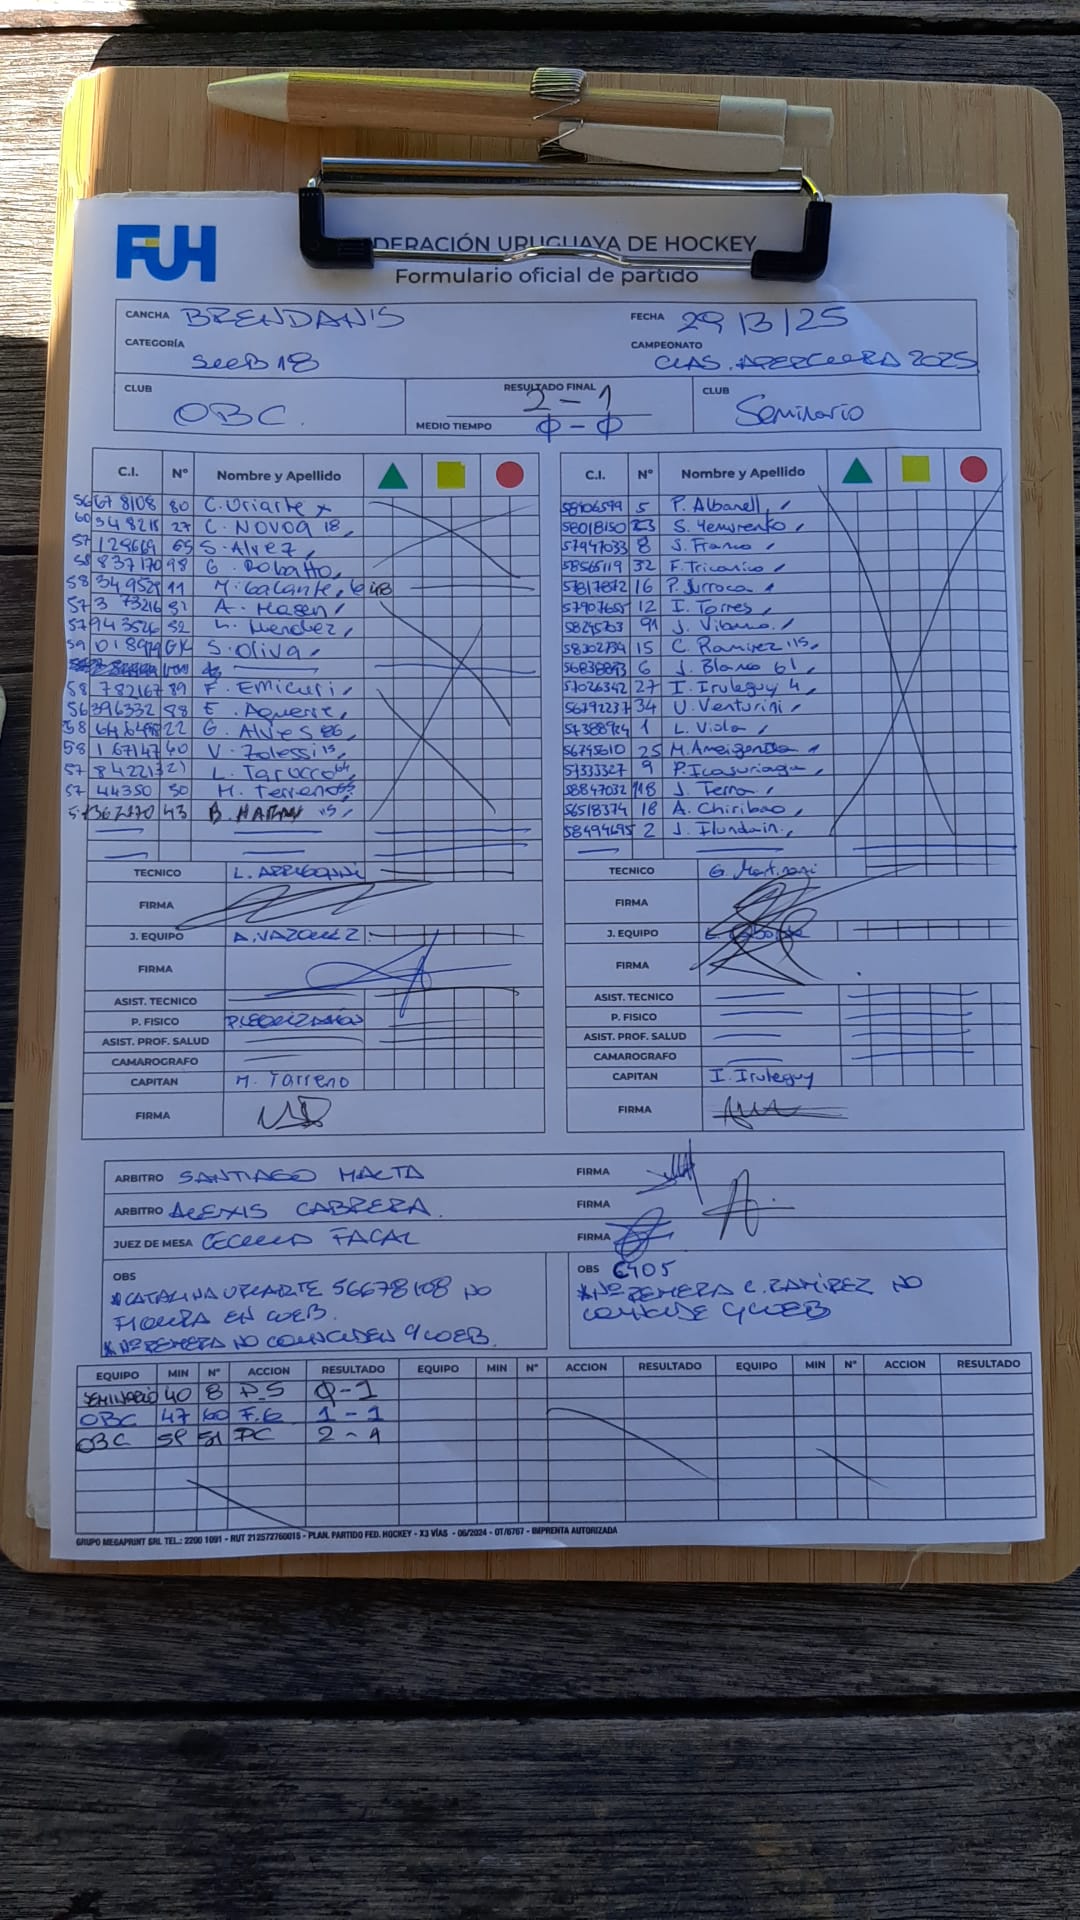 FUH
DERACIÓN URUGUAYA DE HOCKEY
Formulario oficial de partido
CANCHA BRENDAN'S
FECHA 29/3/25
CATEGORÍA SUB 18
CAMPEONATO CLAS. APERTURA 2025
CLUB OBC.
RESULTADO FINAL 2-1
MEDIO TIEMPO 0-0
CLUB Seminario
C.I. Nº Nombre y Apellido
56678108 80 C. Uriarte x
27 C. NOVOA 18,
S. Alvez,
58837170 98 G. Robatto,
58349529 11 M. Galante,
A. Hagen,
57943526 52 Mendez,
GK S. Oliva,
58782167 89 F. Emicuri,
56396332 88 E. Aguerre,
22 G. Alves
58167147 40 V. Zolessi 15,
L. Tarocco
5744350 50 M. Terreno
43 B.
TECNICO
FIRMA
J. EQUIPO A. VAZQUEZ
FIRMA
ASIST. TECNICO
P. FISICO
ASIST. PROF. SALUD
CAMAROGRAFO
CAPITAN M. Tarreno
FIRMA
C.I. Nº Nombre y Apellido
58106599 5 P. Albanell,
58018150 23 S.
57947033 8 S. Franco,
58565119 32 F. Tricanico,
57817872 16 P. Urroca,
57907655 12 I. Torres,
58245703 91 J.
58302734 15 C. Ramirez 115,
6 J. Blanco 61
57026342 27 I. Iruleguy 4,
56792237 34 U. Venturini,
57388924 1 L. Viola,
56745610 25 M. Ameigenda
57333327 9 P. Icasuriaga,
58847032 118 J. Terra,
56518374 18 A. Chiribao,
58494695 2 J. Ilundain,
TECNICO G. Martinoni
FIRMA
J. EQUIPO
FIRMA
ASIST. TECNICO
P. FISICO
ASIST. PROF. SALUD
CAMAROGRAFO
CAPITAN I. Iruleguy
FIRMA
ARBITRO SANTIAGO MALTA FIRMA
ARBITRO ALEXIS CABRERA. FIRMA
JUEZ DE MESA CECILIA FACAL FIRMA
OBS
*CATALINA URIARTE 56678108 NO
FIGURA EN WEB.
*Nº REMERA NO COINCIDEN C/WEB.
OBS
*Nº REMERA C. RAMIREZ NO
COINCIDE C/WEB
EQUIPO MIN Nº ACCION RESULTADO EQUIPO MIN Nº ACCION RESULTADO EQUIPO MIN Nº ACCION RESULTADO
SEMINARIO 40 8 P.S 0-1
OBC 47 60 F.G. 1-1
OBC 58 51 PC 2-1
GRUPO MEGAPRINT SRL TEL.: 2200 1091 - RUT 212572760015 - PLAN. PARTIDO FED. HOCKEY - X3 VÍAS - 06/2024 - OT/6767 - IMPRENTA AUTORIZADA